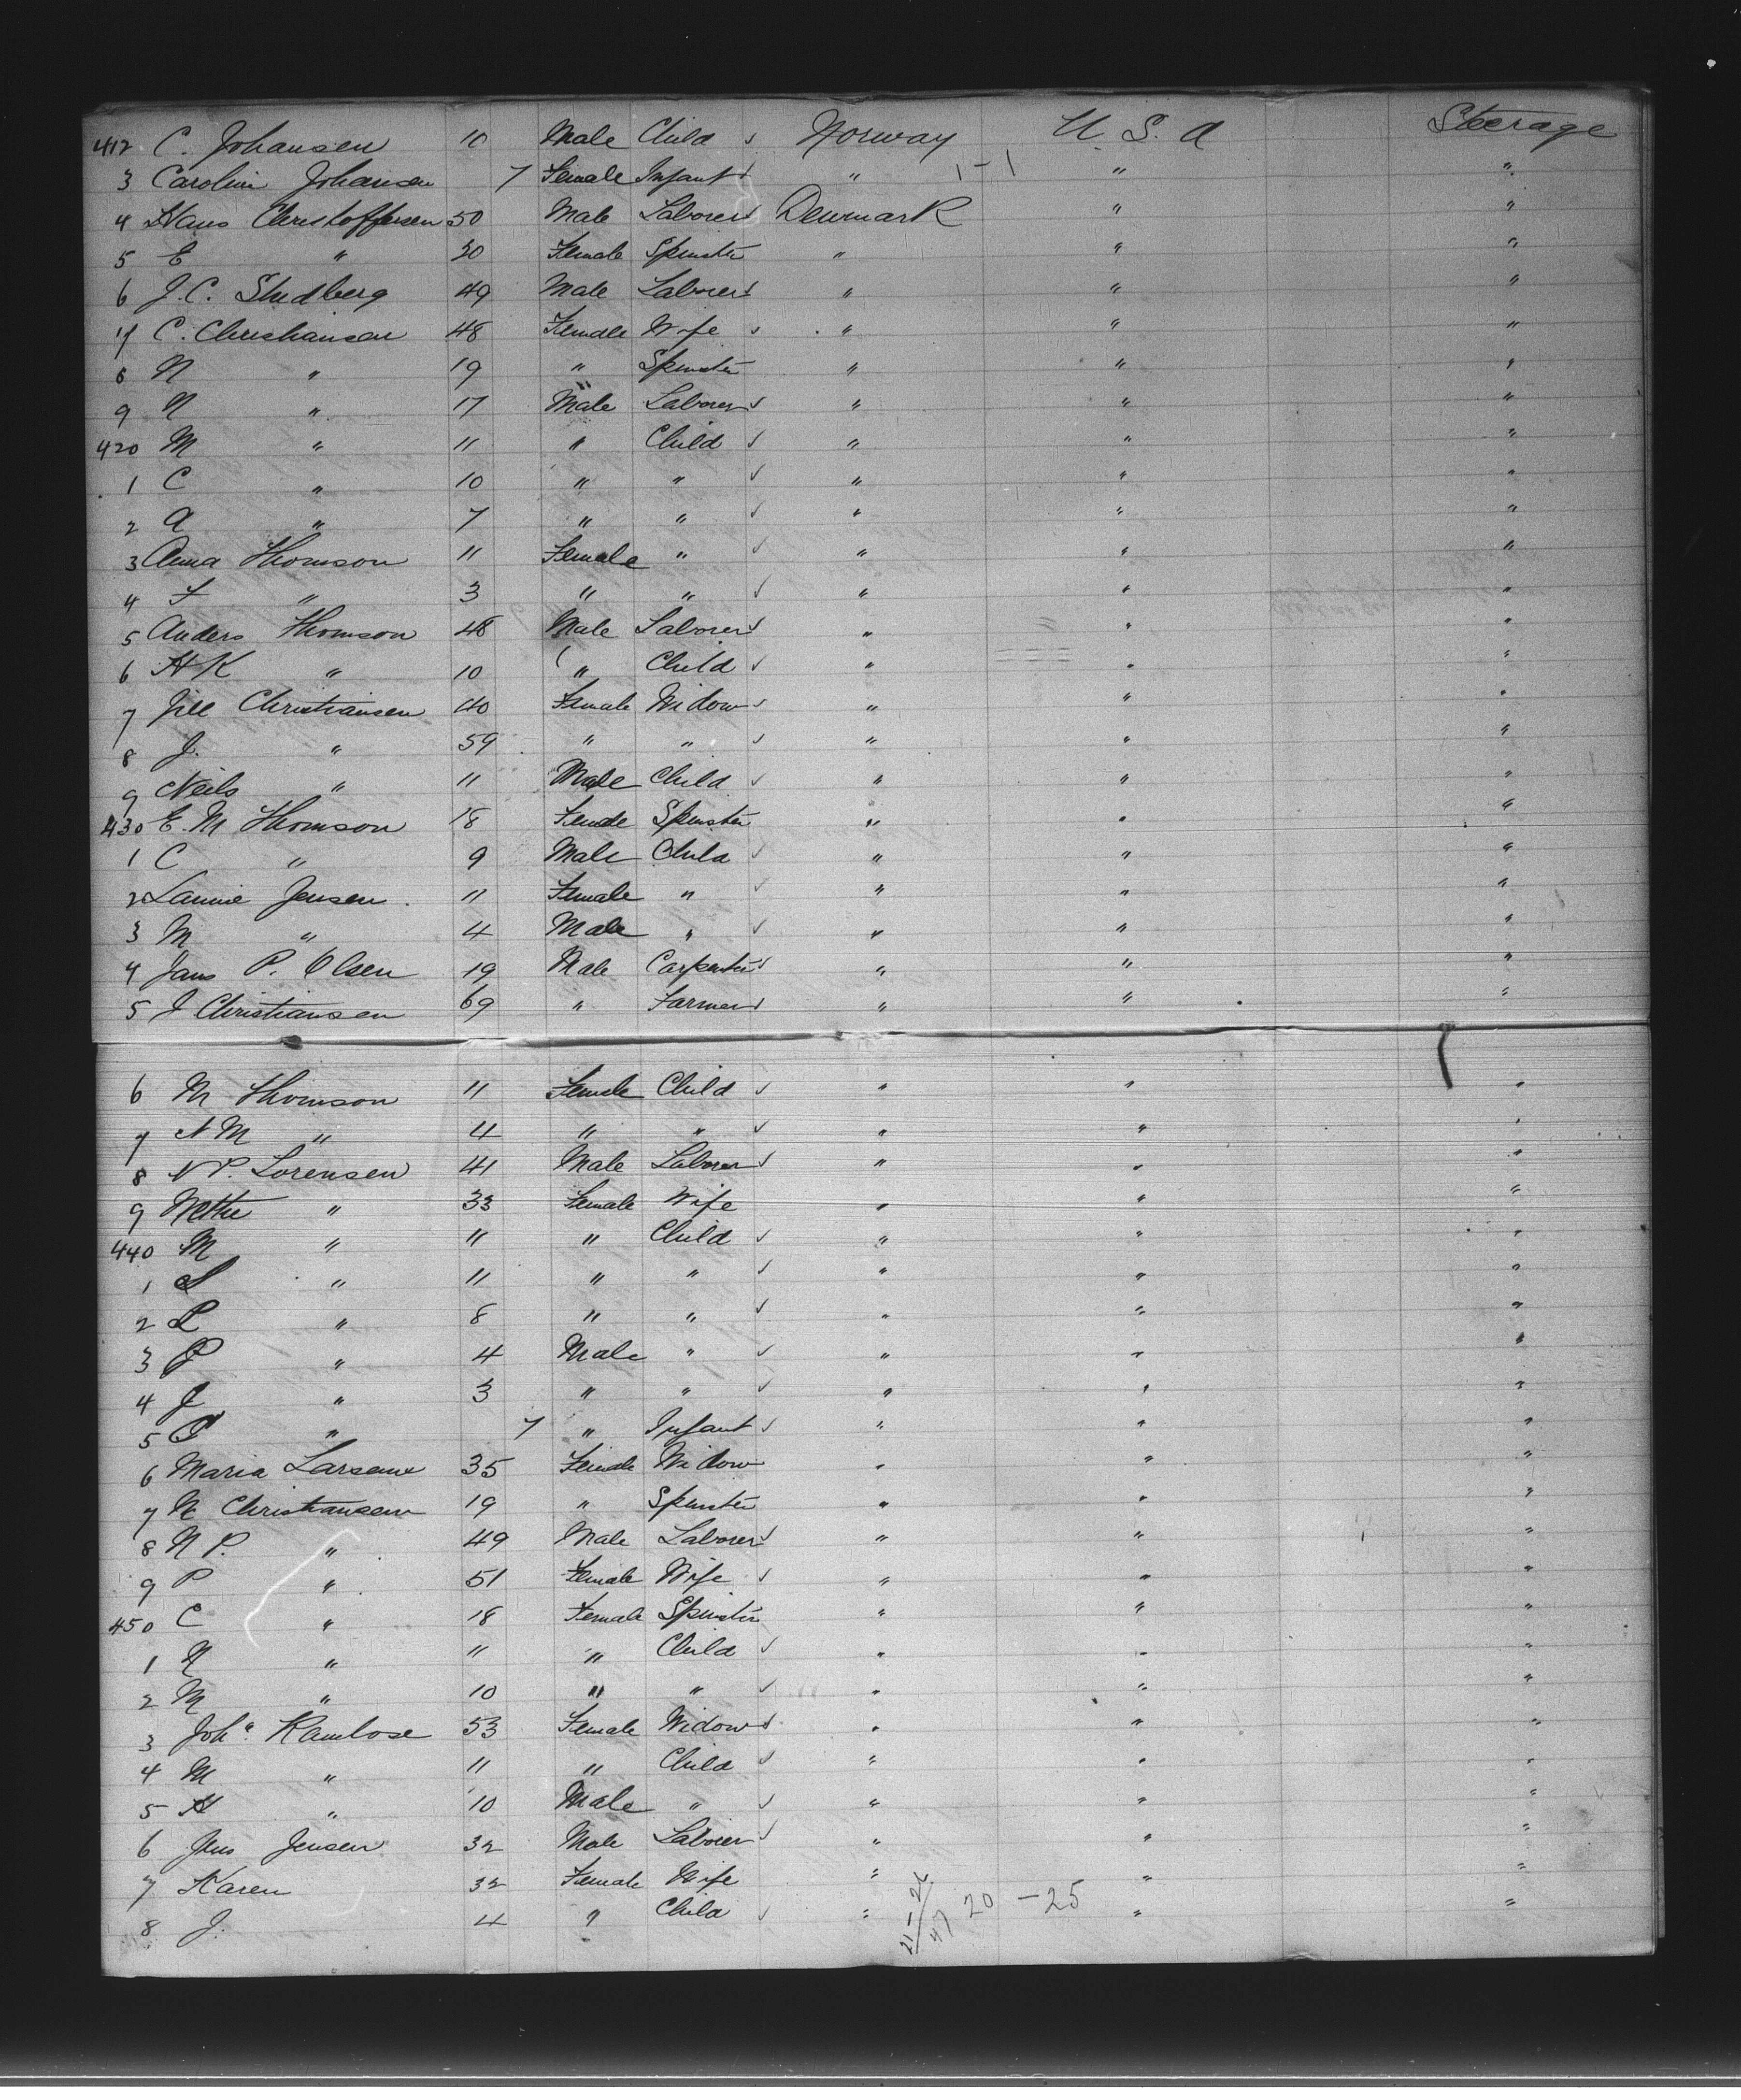 412 C. Johansen 10 Male Child ✓ Norway U. S. A Steerage
3 Carolin Johansen 7 Female Infant ✓ " 1-1 " "
4 Hans Christoffersen 50 Male Laborer ✓ Denmark " "
5 E " 30 Female Spinster " " "
6 J. C. 49 Male Laborer ✓ " " "
7 C. Christiansen 48 Female Wife ✓ " " "
8 N " 19 " Spinster " " "
9 N " 17 Male Laborer ✓ " " "
420 M " 11 " Child ✓ " " "
1 C " 10 " " ✓ " " "
2 A " 7 " " ✓ " " "
3 Anna Thomson 11 Female " ✓ " " "
4 F " 3 " " ✓ " " "
5 Anders Thomson 48 Male Laborer ✓ " " "
6 H K " 10 " Child ✓ " " "
7 Christiansen 40 Female Widow ✓ " " "
8 J. " 59 " " ✓ " " "
9 Neils " 11 Male Child ✓ " " "
430 E. M Thomson 18 Female Spinster " " "
1 C " 9 Male Child ✓ " " "
2 Jensen 11 Female " ✓ " " "
3 M " 4 Male " ✓ " " "
4 Jans P. Olsen 19 Male Carpenter ✓ " " "
5 J Christiansen 69 " Farmer ✓ " " "
6 M Thomson 11 Female Child ✓ " " "
7 N M " 4 " " ✓ " " "
8 N P. Lorensen 41 Male Laborer ✓ " " "
9 Mette " 33 Female Wife " " "
440 M " 11 " Child ✓ " " "
1 S " 11 " " ✓ " " "
2 L " 8 " " ✓ " " "
3 P " 4 Male " ✓ " " "
4 J " 3 " " ✓ " " "
5 " 7 " Infant ✓ " " "
6 Maria Larsen 35 Female Widow " " "
7 N Christiansen 19 " Spinster " " "
8 N P. " 49 Male Laborer ✓ " " "
9 P " 51 Female Wife ✓ " " "
450 C " 18 Female Spinster " " "
1 N " 11 " Child ✓ " " "
2 M " 10 " " ✓ " " "
3 Joh. 53 Female Widow ✓ " " "
4 M " 11 " Child ✓ " " "
5 H " 10 Male " ✓ " " "
6 Jens Jensen 32 Male Laborer ✓ " " "
7 Karen 32 Female Wife " " "
8 J. 4 " Child ✓ " 20 - 25 " "